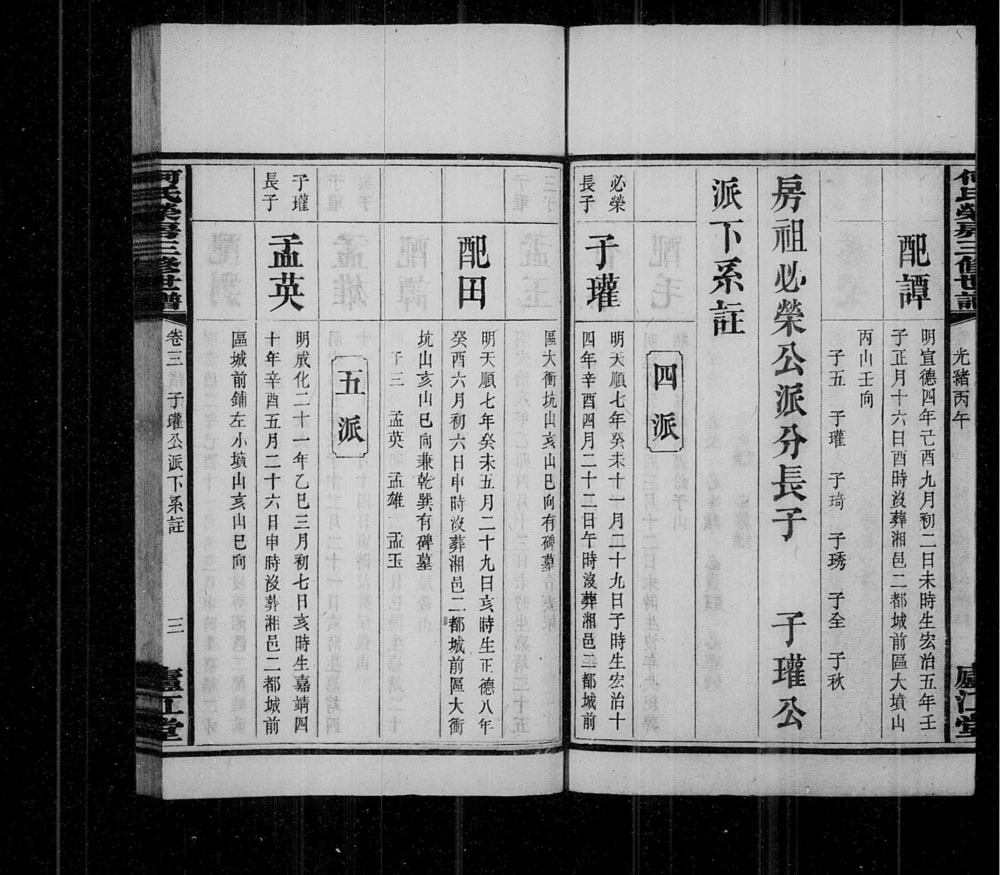 何氏榮房三修世譜
光緒丙午
廬江堂
配譚
明宣德四年己酉九月初二日未時生宏治五年壬
子正月十六日酉時沒葬湘邑二都城前區大墳山
丙山壬向
子五　子瓘　子琦　子琇　子全　子秋
房祖必榮公派分長子　子瓘公
派下系註
四派
必榮
長子
子瓘
明天順七年癸未十一月二十九日子時生宏治十
四年辛酉四月二十三日午時沒葬湘邑二都城前
區大衝坑山亥山巳向有碑墓
配田
明天順七年癸未五月二十九日亥時生正德八年
癸酉六月初六日申時沒葬湘邑二都城前區大衝
坑山亥山巳向兼乾巽有碑墓
子三　孟英　孟雄　孟玉
五派
子瓘
長子
孟英
明成化二十一年乙巳三月初七日亥時生嘉靖四
十年辛酉五月二十六日申時沒葬湘邑二都城前
區城前鋪左小墳山亥山巳向
何氏榮房三修世譜
卷三
子瓘公派下系註
三
廬江堂